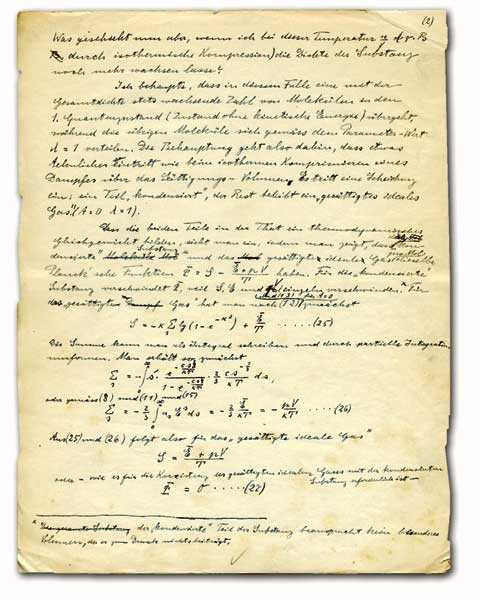 (2)
Was geschieht nun aber, wenn ich bei dieser Temperatur
durch isothermische Kompression) die Dichte der Substanz
noch mehr wachsen lasse?
Ich behaupte, dass in diesem Falle eine mit der
Gesamtdichte stets wachsende Zahl von Molekülen in den
1. Quantenzustand (Zustand ohne kinetische Energie) übergeht,
während die übrigen Moleküle sich gemäss dem Parameter-Wert
λ = 1 verteilen. Die Behauptung geht also dahin, dass etwas
Aehnliches eintritt wie beim isothermen Komprimieren eines
Dampfes über das Sättigungs-Volumen. Es tritt eine Scheidung
ein; ein Teil „kondensiert", der Rest bleibt ein „gesättigtes ideales
Gas" (A=0 λ=1).
Dass die beiden Teile in der That ein thermodynamisches
Gleichgewicht bilden, sieht man ein, indem man zeigt, dass die „kon-
densierte" Substanz und das gesättigte ideale Gas pro Mol dieselbe
Planck'sche Funktion Φ = S - (E + pV)/T haben. Für die „kondensierte"
Substanz verschwindet Φ, weil S, E und V einzeln verschwinden.* Für
das „gesättigte Gas" hat man nach (12) und (13) für A=0 zunächst
S = -κ Σ lg(1 - e^-αs) + E/T ..... (25)
Die Summe kann man als Integral schreiben und durch partielle Integration
umformen. Man erhält so zunächst
Σ = -∫ s · e^-cs/κT / (1 - e^-cs/κT) · 2/3 · cs/κT ds,
oder gemäss (8) und (11) und (15)
Σ = -2/3 ∫ n E ds = -2/3 E/κT = -pV/κT ..... (26)
Aus (25) und (26) folgt also für das „gesättigte ideale Gas"
S = (E + pV)/T
oder - wie es für die Koexistenz des gesättigten idealen Gases mit der kondensierten
Substanz erforderlich ist -
Φ = 0 ..... (27)
* Der „kondensierte" Teil der Substanz beansprucht kein besonderes
Volumen, da er zum Druck nichts beiträgt.